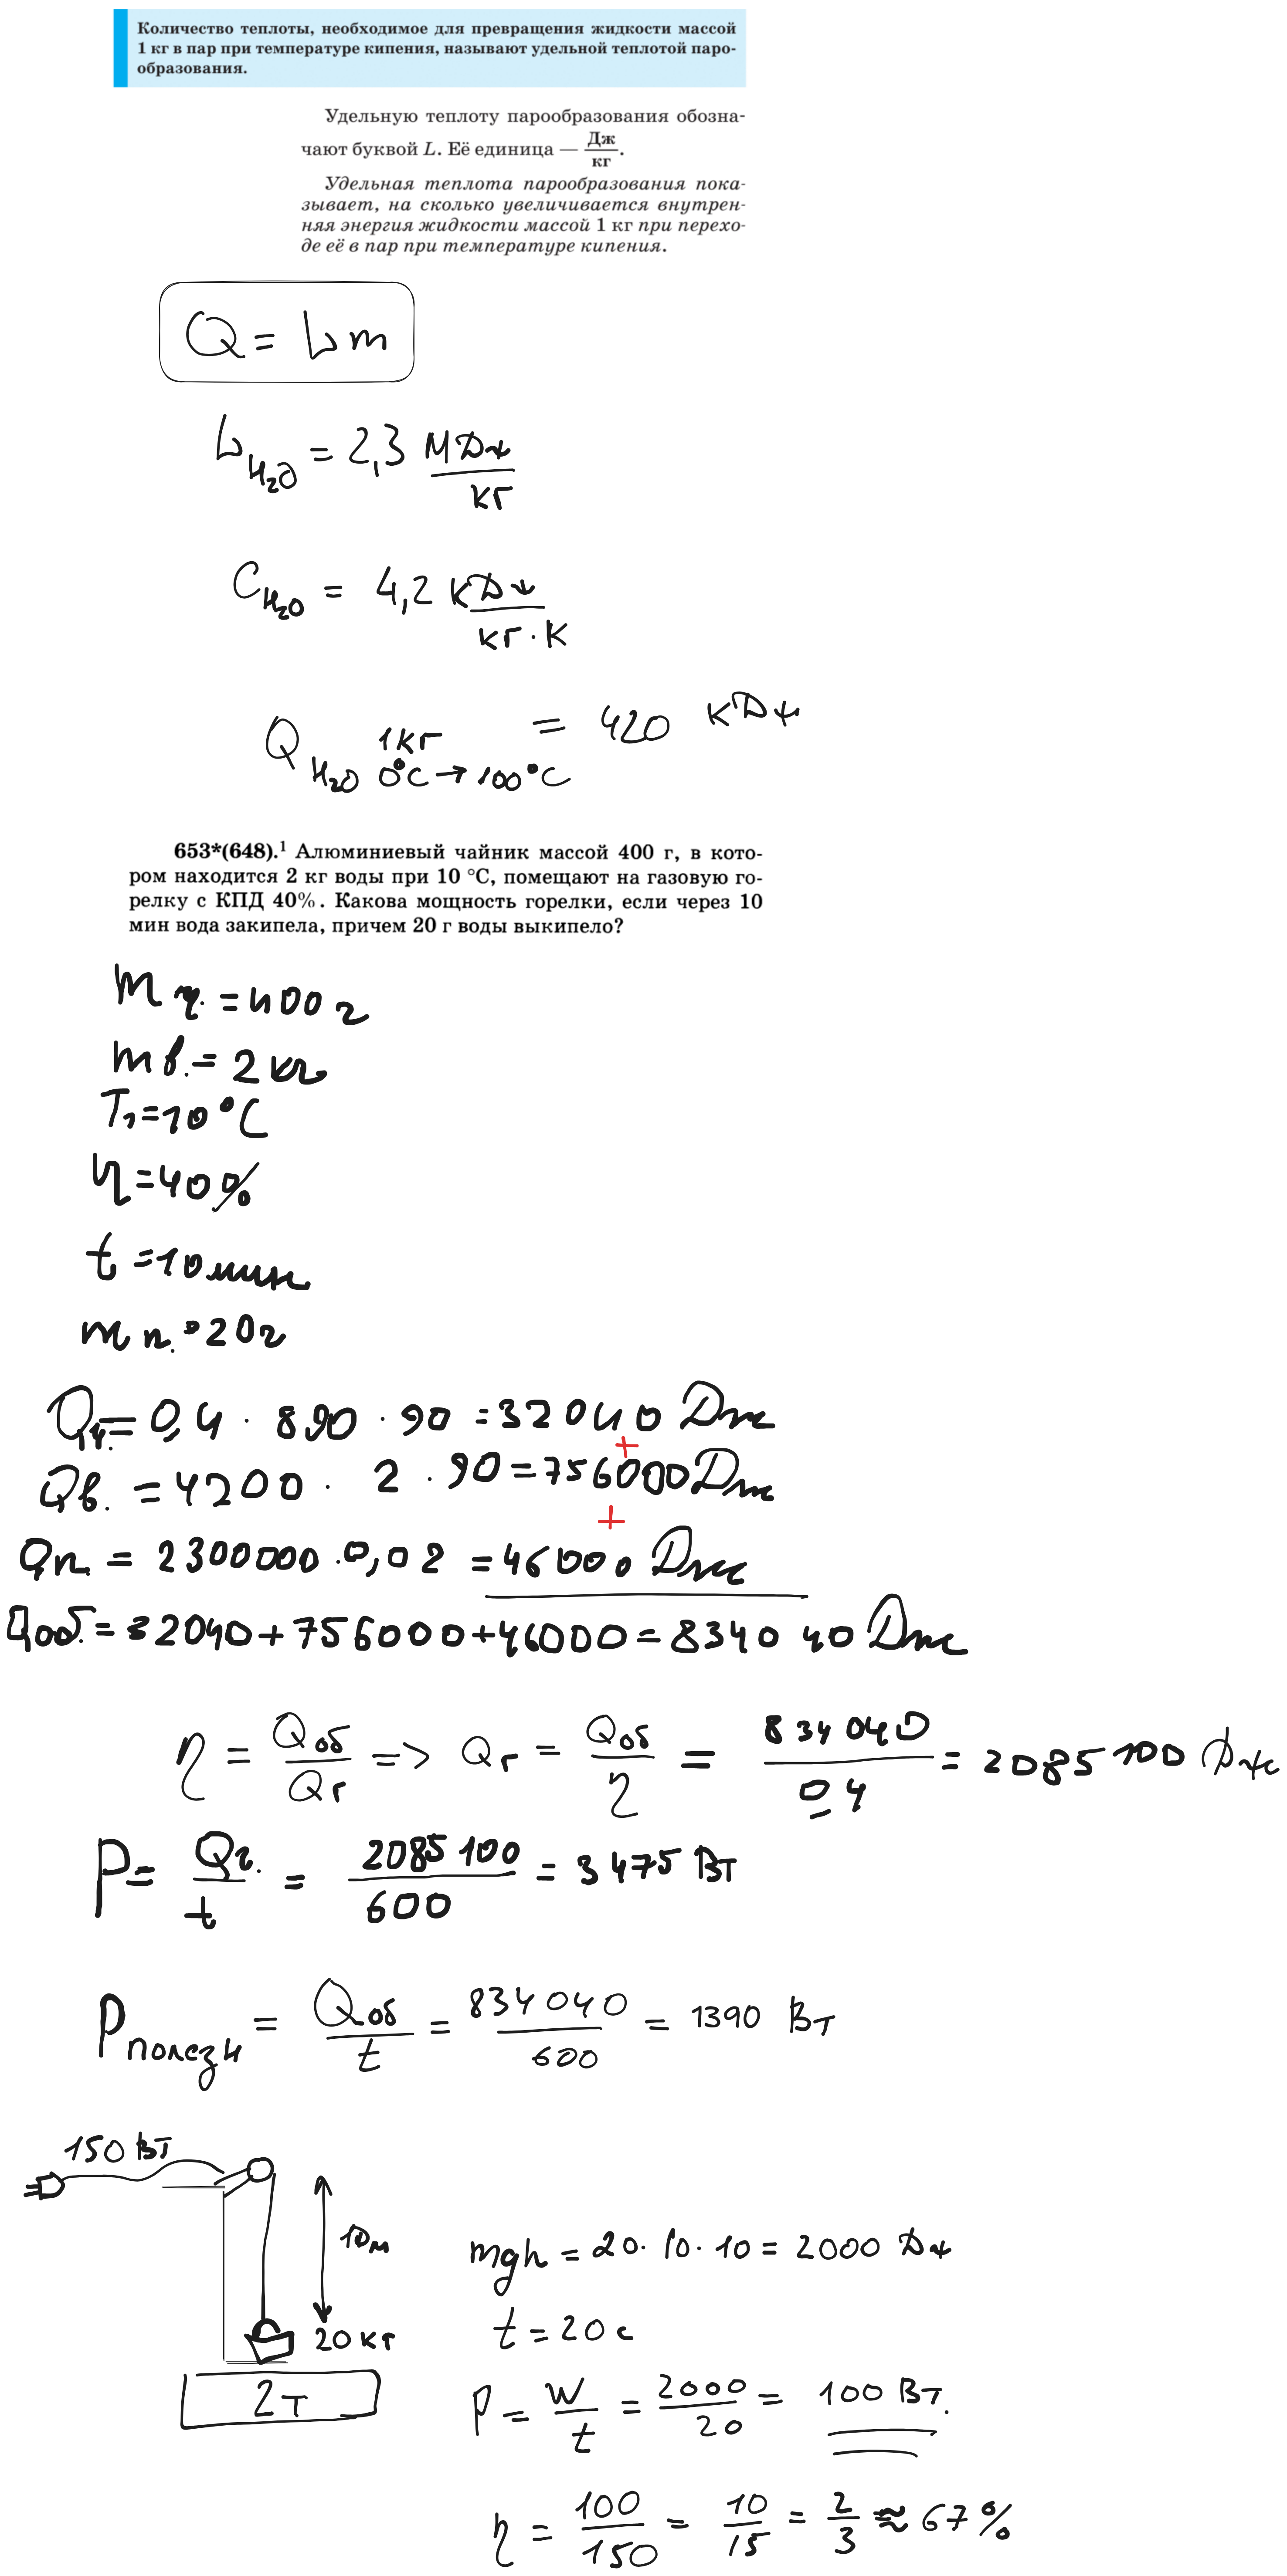 Количество теплоты, необходимое для превращения жидкости массой
1 кг в пар при температуре кипения, называют удельной теплотой паро-
образования.
Удельную теплоту парообразования обозна-
чают буквой L. Её единица — Дж/кг.
Удельная теплота парообразования пока-
зывает, на сколько увеличивается внутрен-
няя энергия жидкости массой 1 кг при перехо-
де её в пар при температуре кипения.
Q = Lm
L H₂O = 2,3 МДж/кг
C H₂O = 4,2 кДж/кг·К
Q H₂O 1кг 0°C → 100°C = 420 кДж
653*(648).¹ Алюминиевый чайник массой 400 г, в кото-
ром находится 2 кг воды при 10 °С, помещают на газовую го-
релку с КПД 40%. Какова мощность горелки, если через 10
мин вода закипела, причем 20 г воды выкипело?
m ч. = 400 г
m в. = 2 кг
T₁ = 10°C
η = 40%
t = 10 мин
m п. = 20 г
Qч. = 0,4 · 890 · 90 = 32040 Дж
+
Qв. = 4200 · 2 · 90 = 756000 Дж
+
Qп. = 2300000 · 0,02 = 46000 Дж
Qоб. = 32040 + 756000 + 46000 = 834040 Дж
η = Qоб/Qг => Qг = Qоб/η = 834040/0,4 = 2085100 Дж
P = Qг./t = 2085100/600 = 3475 Вт
P полезн = Qоб/t = 834040/600 = 1390 Вт
150 Вт
10м
20 кг
2 т
mgh = 20 · 10 · 10 = 2000 Дж
t = 20 с
P = W/t = 2000/20 = 100 Вт.
η = 100/150 = 10/15 = 2/3 ≈ 67%